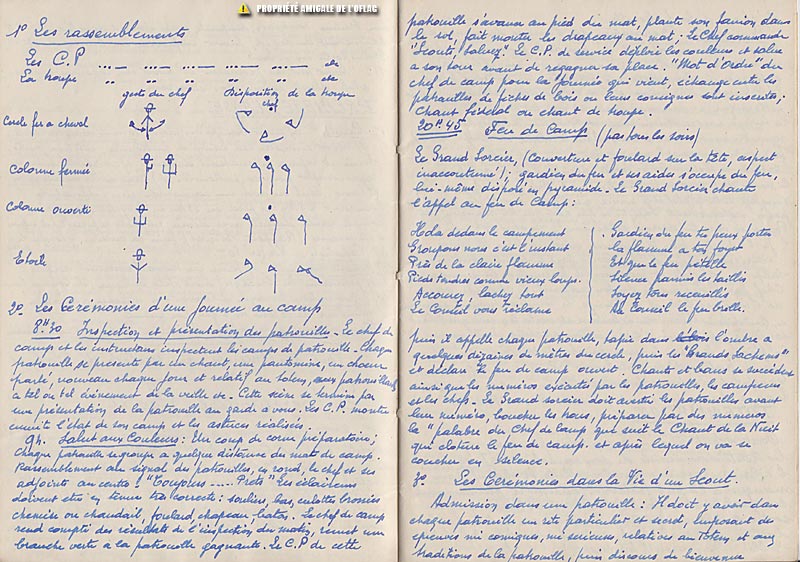 PROPRIÉTÉ AMICALE DE L'OFLAG
1° Les rassemblements
Les C.P
La troupe
geste du chef Disposition de la troupe
chef
Cercle fer a cheval
Colonne fermée
Colonne ouverte
Etoile
2° Les Cérémonies d'une Journée au camp
8h30 Inspection et présentation des patrouilles. Le chef de
camp et les instructeurs inspectent les camps de patrouille. Chaque
patrouille se presente par un chant, une pantomime, un choeur
parlé, nouveau chaque jour et relatif au totem,
a tel ou tel évènement de la veille etc. Cette scène se termine par
une présentation de la patrouille au garde a vous. Les C.P. montre
ensuite l'état de son camp et les astuces réalisées.
9h. Salut aux Couleurs: Un coup de corne préparatoire;
Chaque patrouille se groupe a quelque distance du mat de camp.
Rassemblement au signal des patrouilles, en rond, le chef et ses
adjoints au centre. "Toujours ..... Prets" Les éclaireurs
doivent etre en tenue très correcte: souliers, bas, culottes
chemise ou chandail, foulard, chapeau, baton. Le chef de camp
rend compte des résultats de l'inspection du matin, remet une
branche verte a la patrouille gagnante. Le C.P de cette
patrouille s'avance au pied du mat, plante son fanion dans
le sol, fait monter les drapeaux au mat; Le Chef commande
"Scouts Saluez". Le C.P. de service déploie les couleurs et salue
a son tour avant de regagner sa place. "Mot d'Ordre" du
chef de camp pour la journée qui vient, échange entre les
patrouilles de fiches de bois ou leurs consignes sont inscrites;
Chant fédéral ou chant de troupe.
20h45 Feu de Camp (pas tous les soirs)
Le Grand Sorcier, (couverture et foulard sur la tête, aspect
inaccoutumé); gardien du feu et ses aides s'occupe du feu,
lui-même disposé en pyramide. Le Grand Sorcier chante
l'appel au feu de Camp:
Hola dedans le campement
Groupons nous c'est l'instant
Près de la claire flamme
Pieds tendres comme vieux loups.
Accourez, lachez tout
Le Conseil vous réclame
Gardien du feu tu peux porter
la flamme a ton foyer
Et que le feu pétille
Silence parmi les taillis
Soyez tous recueillis
Au Conseil le feu brille.
puis il appelle chaque patrouille, tapie dans l'ombre a
quelques dizaines de mètres du cercle, puis les "Grands Sachems"
et déclare le feu de camp ouvert. Chants et bans se succèdent
ainsi que les numéros exécutés par les patrouilles, les campeurs
et les chefs. Le Grand sorcier doit avertir les patrouilles avant
leur numéro, boucher les trous, préparer par des numéros
la "palabre du Chef de Camp qui suit le Chant de la Nuit
qui cloture le feu de camp. et après lequel on va se
coucher en silence.
3° Les Cérémonies dans la Vie d'un Scout.
Admission dans une patrouille: Il doit y avoir dans
chaque patrouille un rite particulier et secret, imposant des
épreuves mi comiques, mi serieuse, relatives au Totem et aux
traditions de la patrouille, puis discours de bienvenue